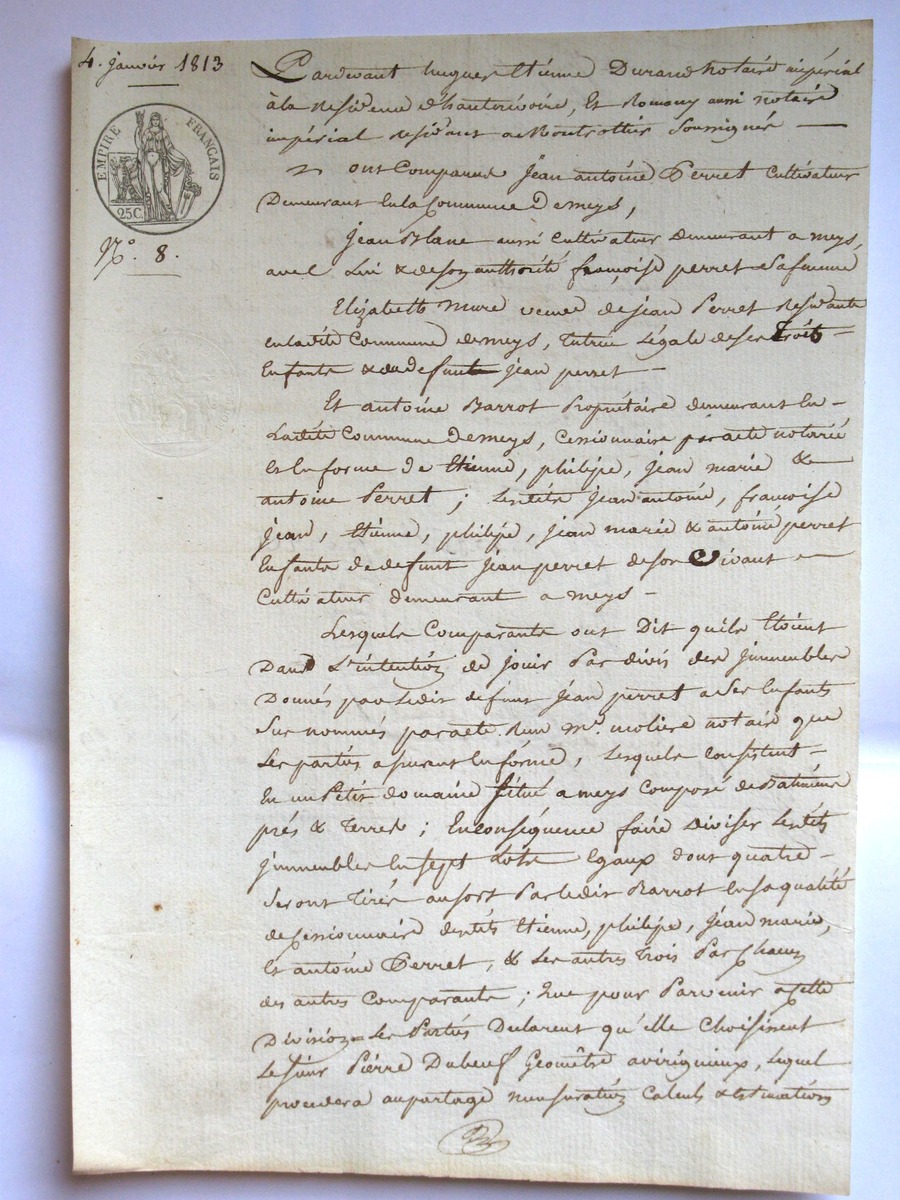 4. janvier 1813
EMPIRE FRANÇAIS
25C.
N.o 8.
Pardevant hugues Etienne Durand notaire impérial
à la Residence d'hauterivoire, Et Romany aussi notaire
impérial Residant a Montrottier Soussignés —
ont Comparus Jean antoine Perret Cultivateur
Demeurant En la Commune De meys,
Jean Blanc aussi Cultivateur Demeurant a meys,
avec Lui & de son authorité françoise perret Sa femme
Elizabeth Mure veuve de Jean Perret Residante
en ladite Commune de meys, tutrice Légale de ses trois —
Enfants & du defunt Jean perret —
Et antoine Barrot Propriétaire demeurant En —
Ladite Commune De meys, Cessionnaire par acte notarié
Et En forme de Etienne, philipe, Jean marie &
antoine Perret ; Lesdits Jean antoine, françoise
Jean, Etienne, philipe, Jean marie & antoine perret
Enfants de defunt Jean perret de son Vivant —
Cultivateur demeurant a meys —
Lesquels Comparants ont Dit qu'ils Etoient
Dans L'intention de jouir Par divis des Jmmeubles
Donnés par Ledit defunt Jean perret a Ses Enfants
Sus nommés par acte Reçu Me. moliere notaire que
Les parties assurent En forme, Lesquels consistent —
En un Petit domaine situé a meys Composé de Batiments
prés & Terres ; En conséquence faire Diviser Lesdits
Jmmeubles En Sept Lots Egaux dont quatre —
Seront Tirés au sort Par ledit Barrot En sa qualité
de Cessionnaire desdits Etienne, philipe, Jean marie,
Et antoine Perret, & Les autres Trois Par Chacun
des autres Comparants ; Que pour Parvenir a cette
Division Les Parties Declarent qu'elle Choisissent
Le sieur Pierre Dubeuf Geomêtre a virigneux, Lequel
procedera au partage mensuration Calculs & Estimations